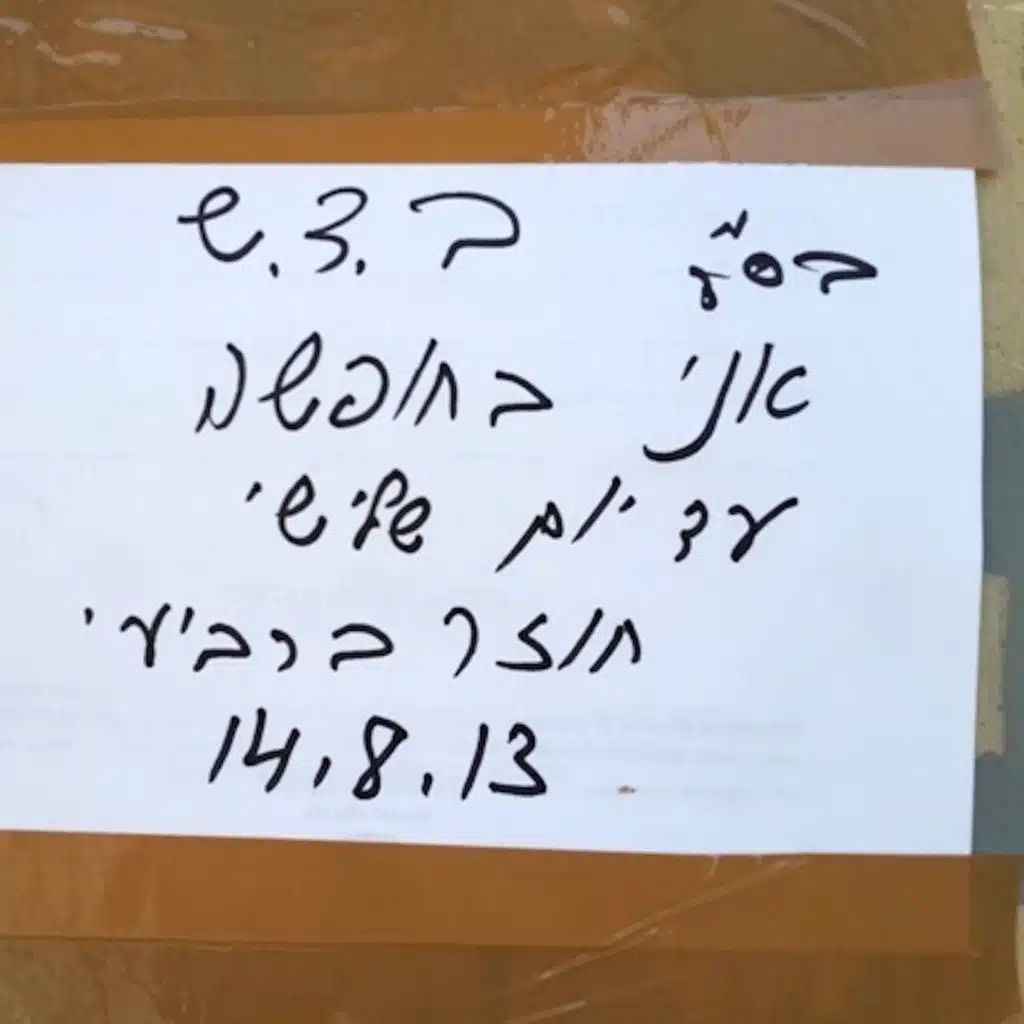 בס״ד
אני בחופשה
עד יום שלישי
חוזר ברביעי
14.8.13